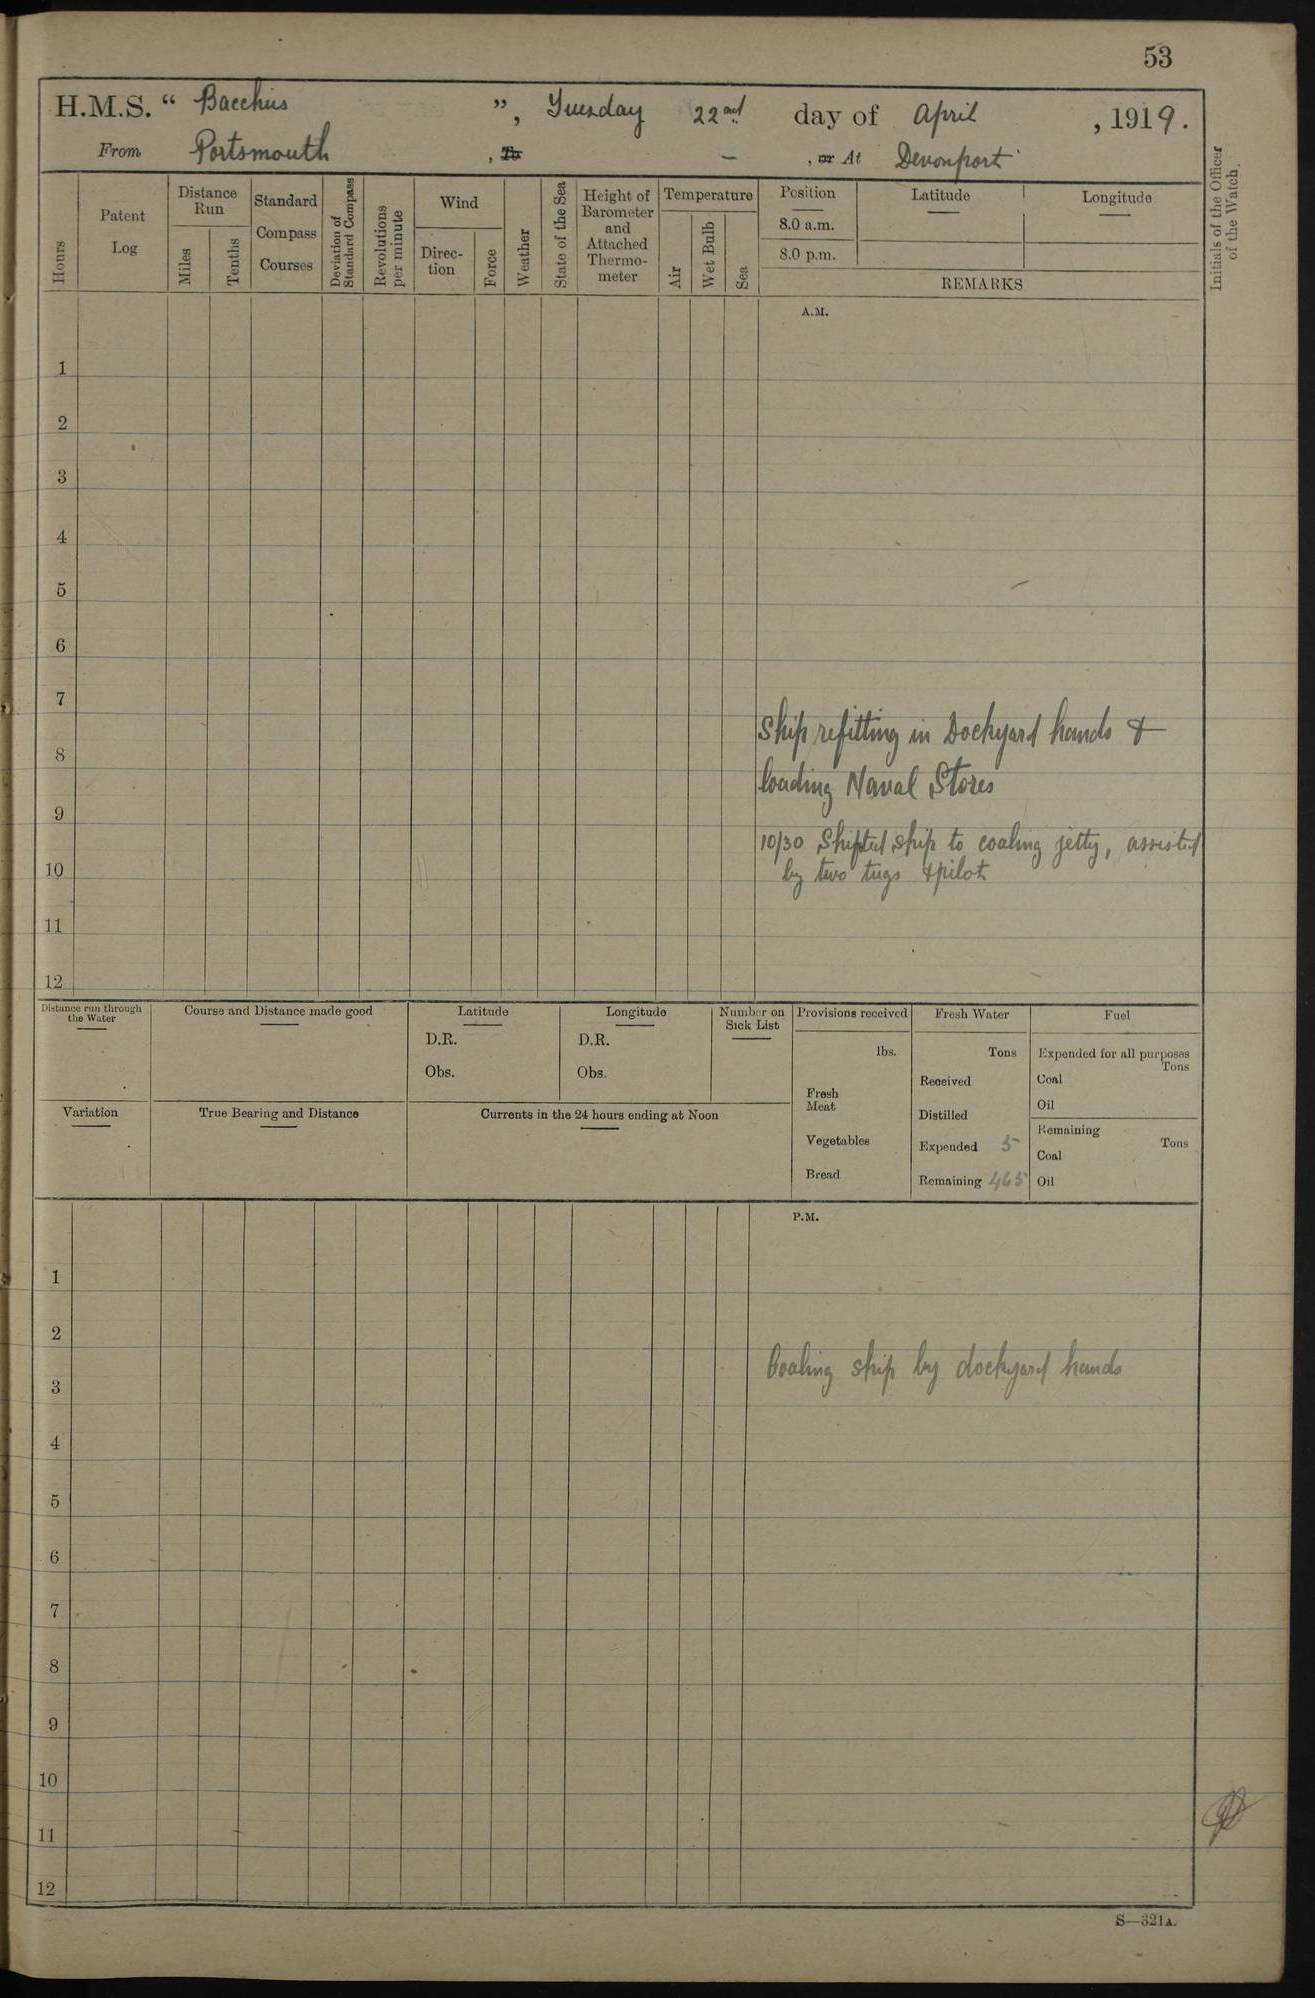 53
H.M.S. “ Bacchus ”, Tuesday 22nd day of April , 1919.
From Portsmouth , To — , or At Devonport
Hours
Patent Log
Distance Run
Miles
Tenths
Standard Compass Courses
Deviation of Standard Compass
Revolutions per minute
Wind
Direc-
tion
Force
Weather
State of the Sea
Height of Barometer and Attached Thermo-
meter
Temperature
Air
Wet Bulb
Sea
Position
8.0 a.m.
8.0 p.m.
Latitude
Longitude
REMARKS
Initials of the Officer of the Watch.
A.M.
1
2
3
4
5
6
7
Ship refitting in Dockyard hands &
8
loading Naval Stores
9
10/30 Shifted ship to coaling jetty, assisted
by two tugs & pilot
10
11
12
Distance run through the Water
Course and Distance made good
Latitude
D.R.
Obs.
Longitude
D.R.
Obs.
Number on Sick List
Provisions received
lbs.
Fresh Meat
Vegetables
Bread
Fresh Water
Tons
Received
Distilled
Expended 5
Remaining 465
Fuel
Expended for all purposes
Tons
Coal
Oil
Remaining
Tons
Coal
Oil
Variation
True Bearing and Distance
Currents in the 24 hours ending at Noon
P.M.
1
2
Coaling ship by dockyard hands
3
4
5
6
7
8
9
10
11
12
S—321A.